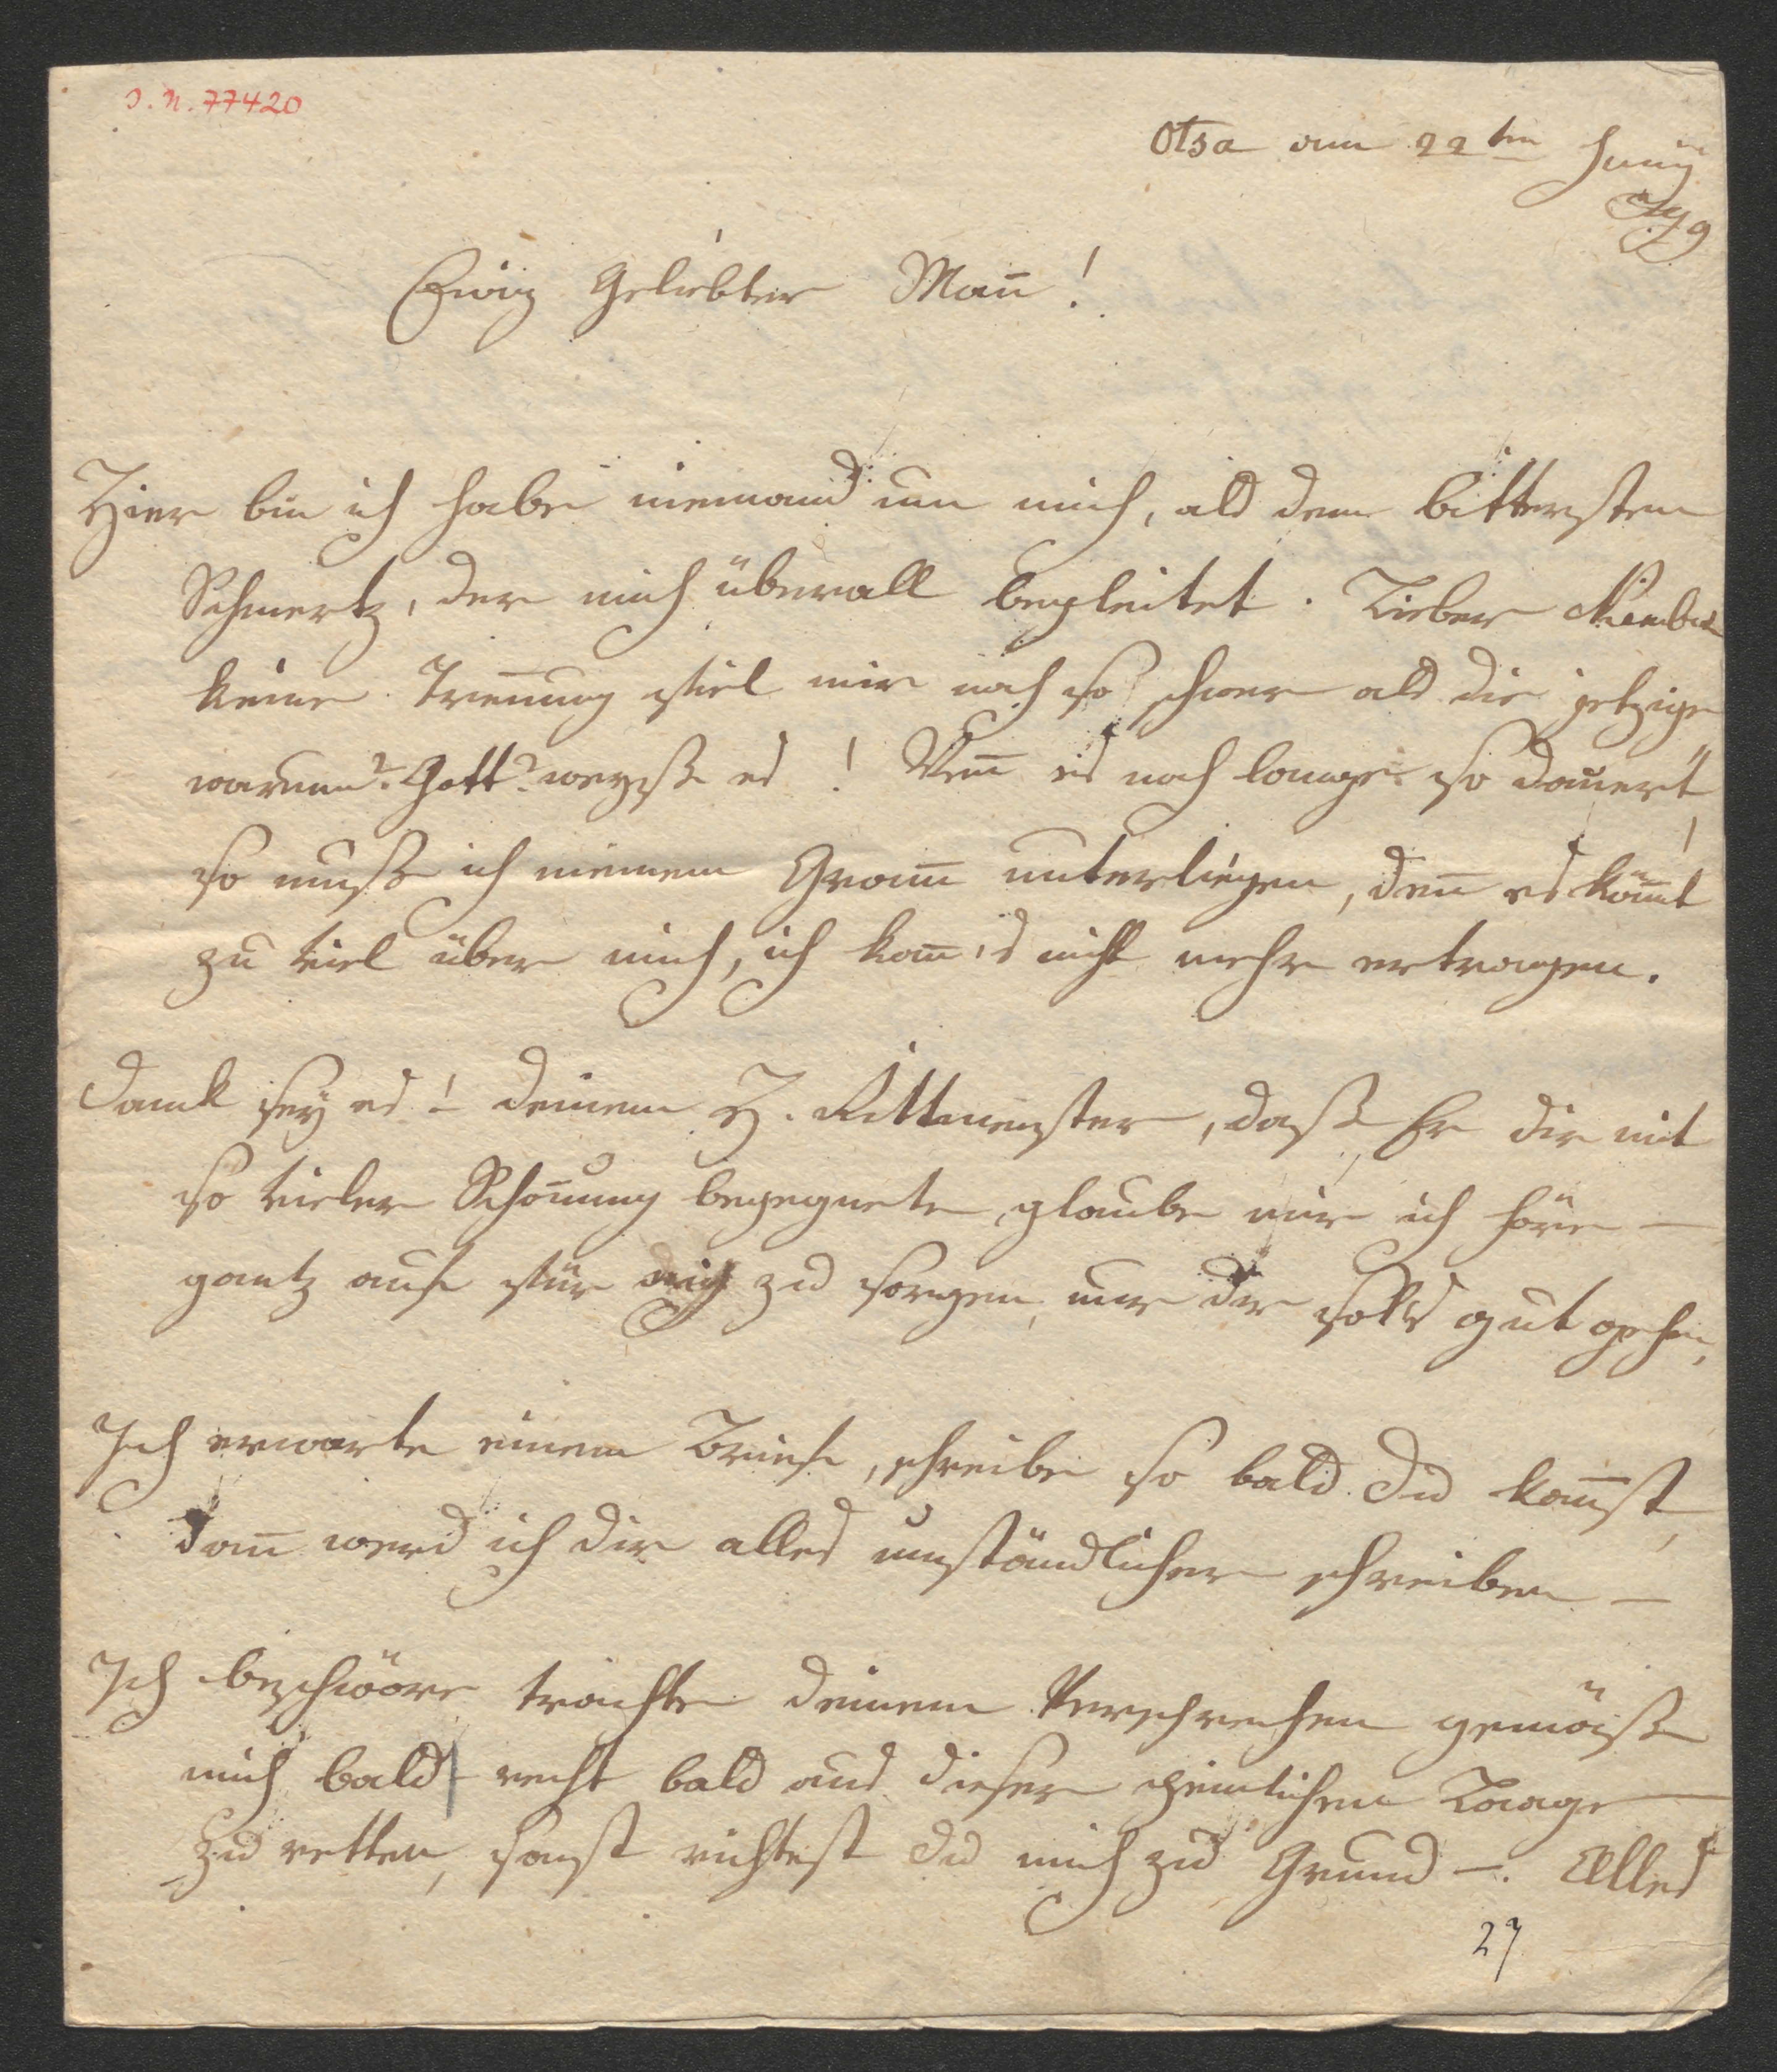 J. N. 77420
Otsa am 22ten Juny
799
Ewig Geliebter Man̄!
Hier bin ich habe niemand um mich, als dem bittersten
Schmertz, der mich überall begleitet. Lieber
keine Tren̄ung fiel mir noch so schwer als die jetzige
warum? Gott? weyß es! Wen̄ es noch lange so dauert,
so muß ich meinem Gram̄ unterliegen, den̄ es köm̄t
zu viel über mich, ich kan̄'s nicht mehr ertragen.
Dank sey es! deinem H. Rittmeister, daß Er dir mit
so vieler Schonung begegnete, glaube mir ich höre —
gantz auf für mich zu sorgen, nur dir soll's gut gehen,
Ich erwarte einem Brief, schreibe so bald du kan̄st,
dan̄ werd ich dir alles umständlicher schreiben —
Ich beschwöre trachte deinem Versprechen gemäß
mich bald recht bald aus dieser peinlichen Laage —
zu retten, sonst richtest du mich zu Grund —. Alles
27